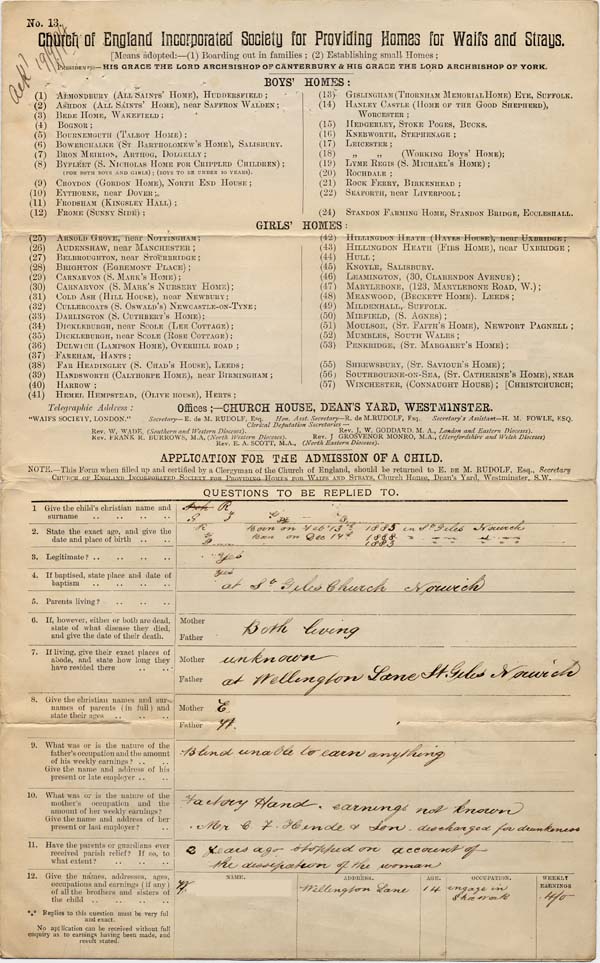 No. 13.
Church of England Incorporated Society for Providing Homes for Waifs and Strays.
[Means adopted:—(1) Boarding out in families; (2) Establishing small Homes;
PRESIDENTS:—HIS GRACE THE LORD ARCHBISHOP OF CANTERBURY & HIS GRACE THE LORD ARCHBISHOP OF YORK.
BOYS' HOMES:
(1) ALMONDBURY (ALL SAINTS' HOME), HUDDERSFIELD;
(2) ASHDON (ALL SAINTS' HOME), near SAFFRON WALDEN;
(3) BEDE HOME, WAKEFIELD;
(4) BOGNOR;
(5) BOURNEMOUTH (TALBOT HOME);
(6) BOWERCHALKE (ST BARTHOLOMEW'S HOME), SALISBURY.
(7) BRON MEIRION, ARTHOG, DOLGELLY;
(8) BYFLEET (S. NICHOLAS HOME FOR CRIPPLED CHILDREN);
(FOR BOTH BOYS AND GIRLS); (BOYS TO BE UNDER 10 YEARS).
(9) CROYDON (GORDON HOME), NORTH END HOUSE;
(10) EYTHORNE, near DOVER;
(11) FRODSHAM (KINGSLEY HALL);
(12) FROME (SUNNY SIDE);
(13) GISLINGHAM (THORNHAM MEMORIAL HOME) EYE, SUFFOLK.
(14) HANLEY CASTLE (HOME OF THE GOOD SHEPHERD),
WORCESTER;
(15) HEDGERLEY, STOKE POGES, BUCKS.
(16) KNEBWORTH, STEPHENAGE;
(17) LEICESTER;
(18) „ „ (WORKING BOYS' HOME);
(19) LYME REGIS (S. MICHAEL'S HOME);
(20) ROCHDALE;
(21) ROCK FERRY, BIRKENHEAD;
(22) SEAFORTH, near LIVERPOOL;
(24) STANDON FARMING HOME, STANDON BRIDGE, ECCLESHALL.
GIRLS' HOMES:
(25) ARNOLD GROVE, near NOTTINGHAM;
(26) AUDENSHAW, near MANCHESTER;
(27) BELBROUGHTON, near STOURBRIDGE;
(28) BRIGHTON (EGREMONT PLACE);
(29) CARNARVON (S. MARK'S HOME);
(30) CARNARVON (S. MARK'S NURSERY HOME);
(31) COLD ASH (HILL HOUSE), near NEWBURY;
(32) CULLERCOATS (S. OSWALD'S) NEWCASTLE-ON-TYNE;
(33) DARLINGTON (S. CUTHBERT'S HOME);
(34) DICKLEBURGH, near SCOLE (LEE COTTAGE);
(35) DICKLEBURGH, near SCOLE (ROSE COTTAGE);
(36) DULWICH (LAMPSON HOME), OVERHILL ROAD;
(37) FAREHAM, HANTS;
(38) FAR HEADINGLEY (S. CHAD'S HOUSE), LEEDS;
(39) HANDSWORTH (CALTHORPE HOME), near BIRMINGHAM;
(40) HARROW;
(41) HEMEL HEMPSTEAD, (OLIVE HOUSE), HERTS;
(42) HILLINGDON HEATH (HAYES HOUSE), near UXBRIDGE;
(43) HILLINGDON HEATH (FIRS HOME), near UXBRIDGE;
(44) HULL;
(45) KNOYLE, SALISBURY.
(46) LEAMINGTON, (30, CLARENDON AVENUE);
(47) MARYLEBONE, (123, MARYLEBONE ROAD, W.);
(48) MEANWOOD, (BECKETT HOME). LEEDS;
(49) MILDENHALL, SUFFOLK.
(50) MIRFIELD, (S. AGNES);
(51) MOULSOE, (ST. FAITH'S HOME), NEWPORT PAGNELL;
(52) MUMBLES, SOUTH WALES;
(53) PENKRIDGE, (ST. MARGARET'S HOME);
(55) SHREWSBURY, (ST. SAVIOUR'S HOME);
(56) SOUTHBOURNE-ON-SEA, (ST. CATHERINE'S HOME), NEAR
(57) WINCHESTER, (CONNAUGHT HOUSE); [CHRISTCHURCH;
Telegraphic Address: Offices:—CHURCH HOUSE, DEAN'S YARD, WESTMINSTER.
"WAIFS SOCIETY, LONDON." Secretary—E. de M. RUDOLF, Esq. Hon. Asst. Secretary—R. de M. RUDOLF, Esq. Secretary's Assistant—H. M. FOWLE, ESQ.
Clerical Deputation Secretaries—
Rev. W. WADE, (Southern and Western Dioceses). Rev. J. W. GODDARD, M. A., London and Eastern Dioceses).
Rev. FRANK R. BURROWS, M.A. (North Western Dioceses). Rev. J GROSVENOR MONRO, M.A., (Herefordshire and Welch Dioceses)
Rev. E. A. SCOTT, M.A., (North Eastern Dioceses).
APPLICATION FOR THE ADMISSION OF A CHILD.
NOTE.—This Form when filled up and certified by a Clergyman of the Church of England, should be returned to E. DE M. RUDOLF, Esq., Secretary
CHURCH OF ENGLAND INCORPORATED SOCIETY FOR PROVIDING HOMES FOR WAIFS AND STRAYS, Church House, Dean's Yard, Westminster, S.W.
QUESTIONS TO BE REPLIED TO.
1 Give the child's christian name and
surname
2. State the exact age, and give the
date and place of birth
R Born on Feb 13th 1885 in St Giles Norwich
Born on Dec 14th 1888
1883
3. Legitimate?
Yes
4. If baptised, state place and date of
baptism
yes
at St Giles Church Norwich
5. Parents living?
6. If, however, either or both are dead,
state of what disease they died,
and give the date of their death.
Mother
Father
Both living
7. If living, give their exact places of
abode, and state how long they
have resided there
Mother unknown
Father at Wellington Lane St. Giles Norwich
8. Give the christian names and sur-
names of parents (in full) and
state their ages
Mother E
Father W.
9. What was or is the nature of the
father's occupation and the amount
of his weekly earnings?
Give the name and address of his
present or late employer
Blind unable to earn anything
10. What was or is the nature of the
mother's occupation and the
amount of her weekly earnings?
Give the name and address of her
present or last employer?
Factory Hand. earnings not known
Mr C. F. Hinde & Son. discharged for drunkeness
11. Have the parents or guardians ever
received parish relief? If so, to
what extent?
2 years ago stopped on account of
the dissipation of the woman
12. Give the names, addresses, ages,
occupations and earnings (if any)
of all the brothers and sisters of
the child
NAME. ADDRESS. AGE. OCCUPATION. WEEKLY EARNINGS
W. Wellington Lane 14 engage in 4/0
*** Replies to this question must be very full
and exact.
No application can be received without full
enquiry as to earnings having been made, and
result stated.